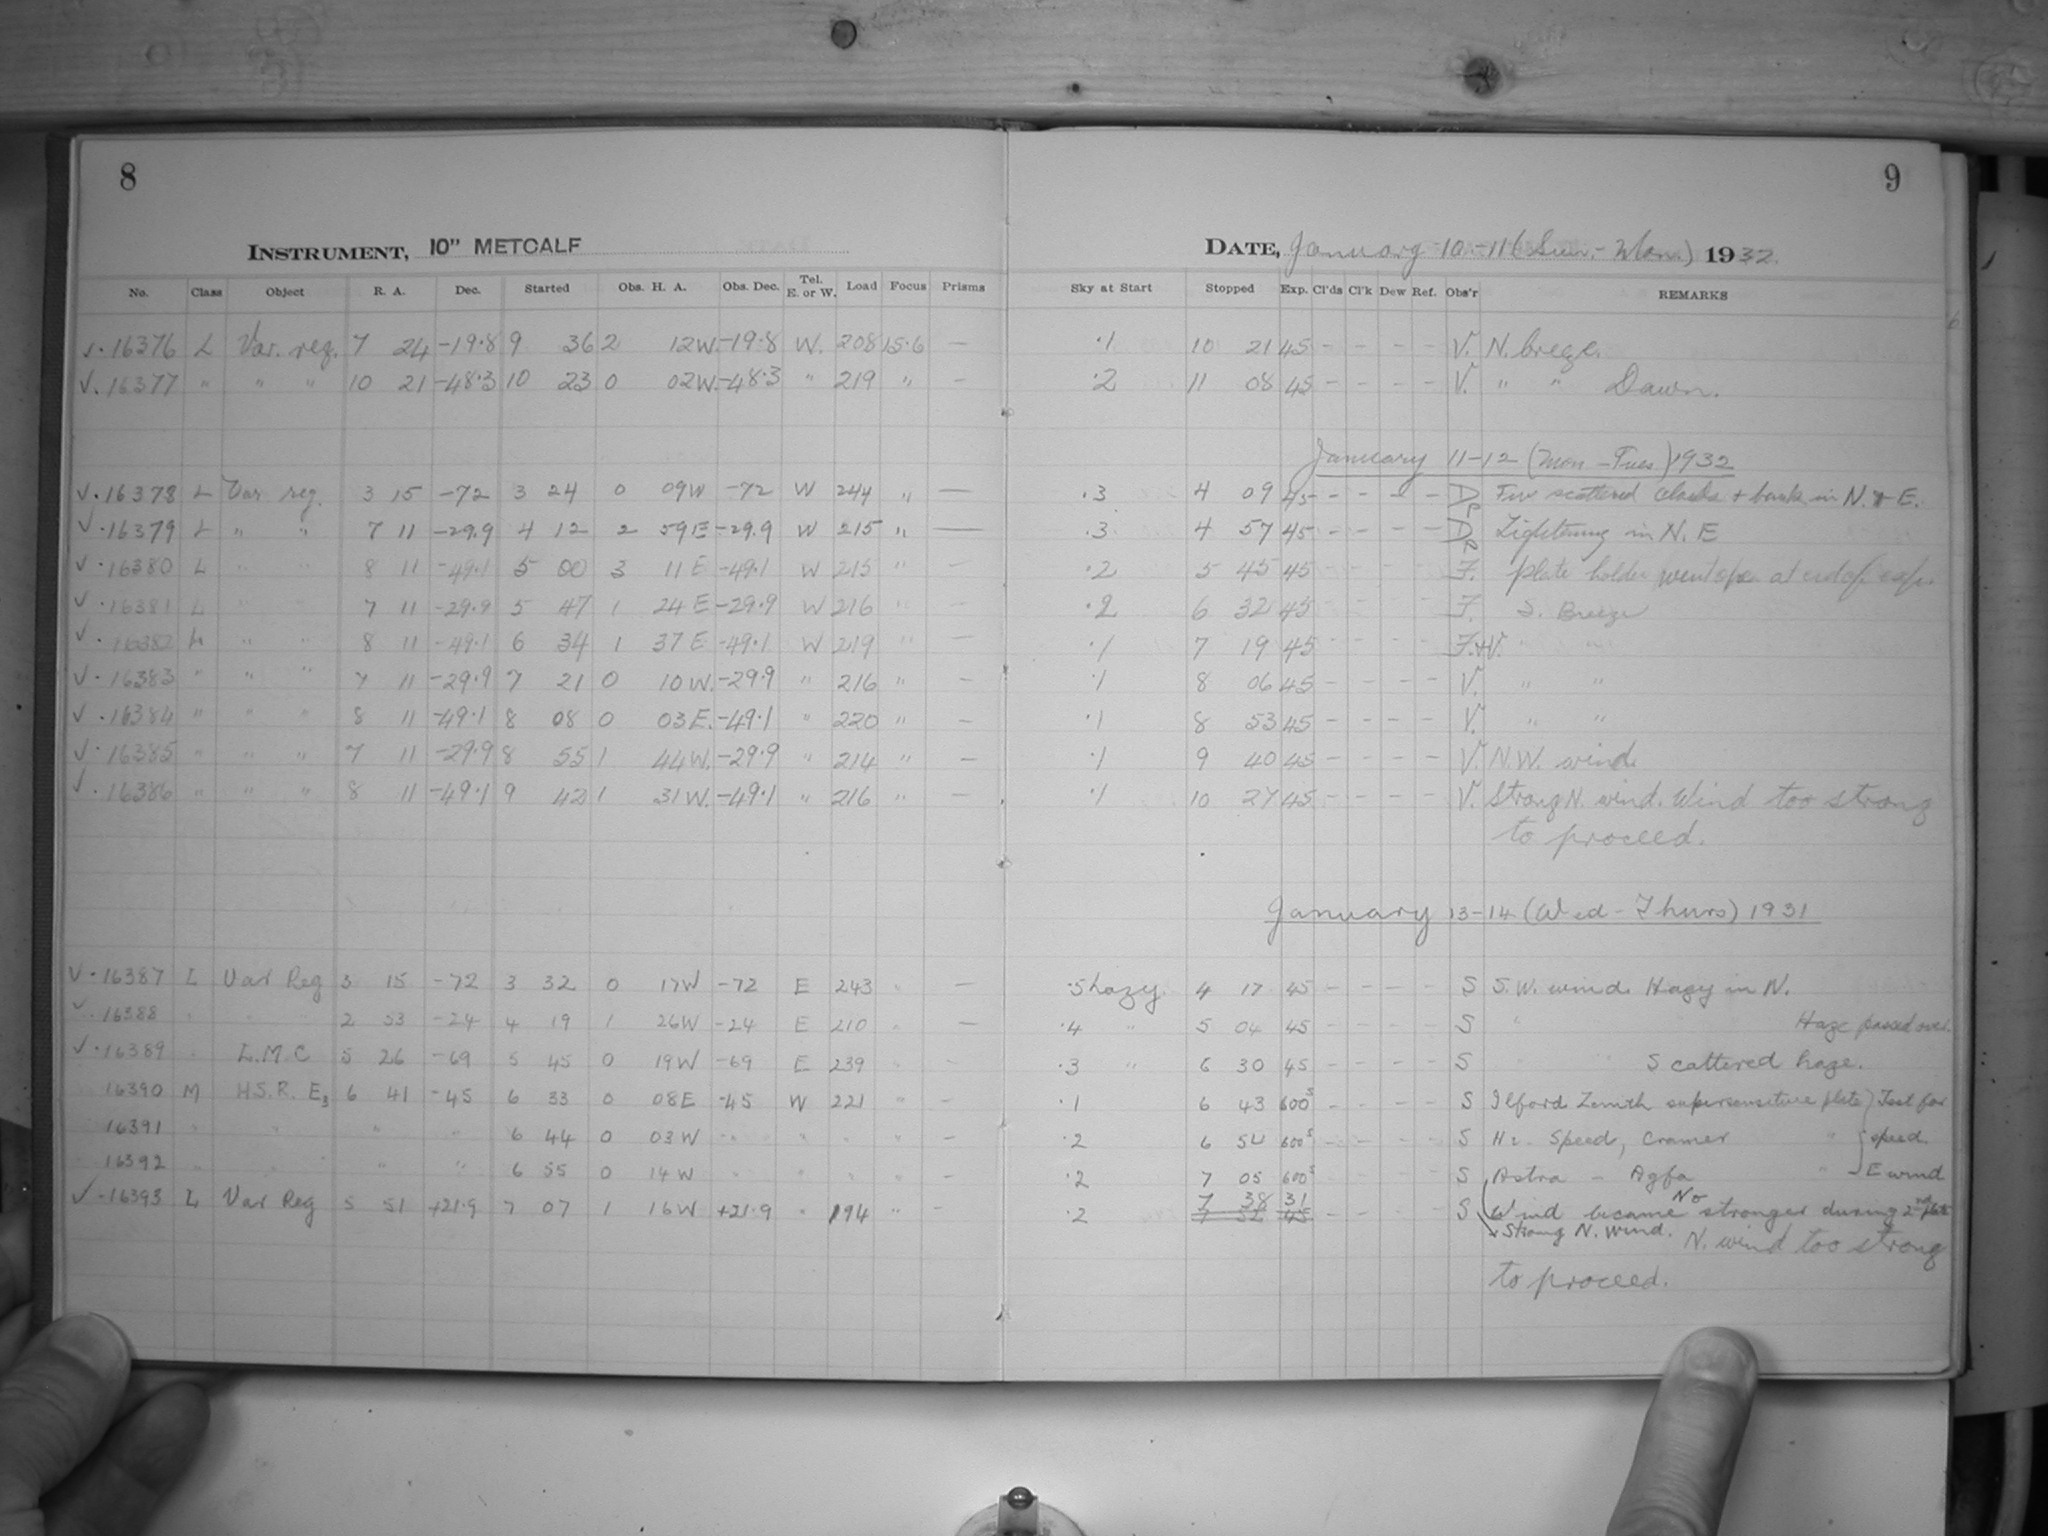 8
9
INSTRUMENT, 10" METCALF
DATE, January 10-11 (Sun. - Mon.) 1932.
No. Class Object R. A. Dec. Started Obs. H. A. Obs. Dec. Tel. E. or W. Load Focus Prisms Sky at Start Stopped Exp. Cl'ds Cl'k Dew Ref. Obs'r REMARKS
√ · 16376 L Var. reg. 7 24 -19·8 9 36 2 12W. -19·8 W. 208 15·6 — ·1 10 21 45 - - - - V. N. breeze.
√ · 16377 " " " 10 21 -48·3 10 23 0 02W. -48·3 " 219 " — ·2 11 08 45 - - - - V. " " Dawn.
January 11-12 (Mon - Tues) 1932
√ · 16378 L Var reg. 3 15 -72 3 24 0 09W -72 W 244 " — ·3 4 09 45 - - - - Dp Few scattered clouds + bank in N. & E.
√ · 16379 L " " 7 11 -29.9 4 12 2 59E -29.9 W 215 " — ·3 4 57 45 - - - - Dp Lightning in N. E
√ · 16380 L " " 8 11 -49.1 5 00 3 11E -49.1 W 215 " — ·2 5 45 45 - - - - F. plate holder went at end of exp.
√ · 16381 L " " 7 11 -29.9 5 47 1 24E -29.9 W 216 " — ·2 6 32 45 - - - - F. S. Breeze
√ · 16382 L " " 8 11 -49.1 6 34 1 37E -49.1 W 219 " — ·1 7 19 45 - - - - F.+V. " "
√ · 16383 " " " 7 11 -29·9 7 21 0 10W. -29·9 " 216 " — ·1 8 06 45 - - - - V. " "
√ · 16384 " " " 8 11 -49·1 8 08 0 03E. -49·1 " 220 " — ·1 8 53 45 - - - - V. " "
√ · 16385 " " " 7 11 -29·9 8 55 1 44W. -29·9 " 214 " — ·1 9 40 45 - - - - V. N.W. wind
√ · 16386 " " " 8 11 -49·1 9 42 1 31W. -49·1 " 216 " — ·1 10 27 45 - - - - V. Strong N. wind. Wind too strong
to proceed.
January 13-14 (Wed - Thurs) 1931
√ · 16387 L Var Reg 3 15 -72 3 32 0 17W -72 E 243 " — ·5 hazy. 4 17 45 - - - - S S.W. wind. Hazy in N.
√ · 16388 " " " 2 53 -24 4 19 1 26W -24 E 210 " — ·4 " 5 04 45 - - - - S " Haze passed over.
√ · 16389 " L.M.C 5 26 -69 5 45 0 19W -69 E 239 " - ·3 " 6 30 45 - - - - S " " Scattered haze.
16390 M H.S.R. E3 6 41 -45 6 33 0 08E -45 W 221 " — ·1 6 43 600s - - - - S Ilford Zenith supersensitive plate } Test for
16391 " " " " 6 44 0 03W " " " " — ·2 6 54 600s - - - - S Hi- Speed, Cramer " speed.
16392 " " " " 6 55 0 14W " " " " — ·2 7 05 600s - - - - S Astra - Agfa " E wind
√ - 16393 L Var Reg 5 51 +21.9 7 07 1 16W +21.9 " 194 " — ·2 7 38 31 7 52 45 - - - - S Wind became No stronger during 2nd plate
Strong N. wind. N. wind too strong
to proceed.